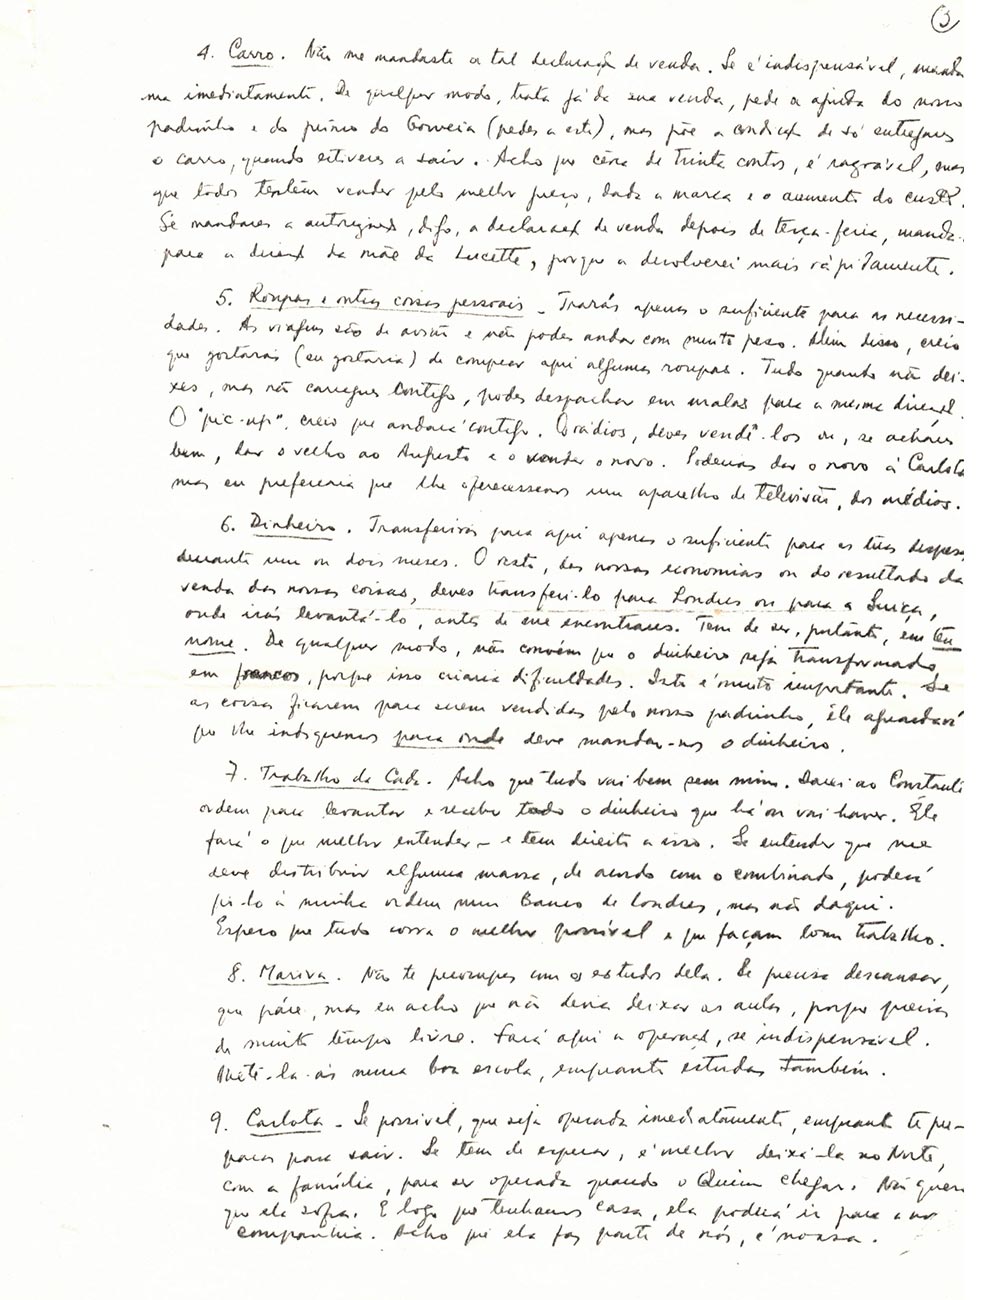 3
4. Carro. Não me mandaste a tal declaração de venda. Se é indispensável, manda-
-ma imediatamente. De qualquer modo, trata já da sua venda, pede a ajuda do nosso
padrinho e do primo do Gouveia (pedes a este), mas põe a condição de só entregares
o carro, quando estiveres a sair. Acho que cêrca de trinta contos, é razoável, mas
que todos tentem vender pelo melhor preço, dada a marca e o aumento do custo.
Se mandares a autorização, digo, a declaração de venda depois de têrça-feira, manda-
para a direcção da mãe da Lucette, porque a devolverei mais ràpidamente.
5. Roupas e outras coisas pessoais - Trarás apenas o suficiente para as necessi-
dades. As viagens são de avião e não podes andar com muito peso. Além disso, creio
que gostarás (eu gostaria) de comprar aqui algumas roupas. Tudo quanto não dei-
xes, mas não carregues contigo, podes despachar em malas para a mesma direcção.
O "pic-up", creio que andará contigo. Os rádios, deves vendê-los ou, se achares
bem, dar o velho ao Augusto e o vender o novo. Poderias dar o novo à Carlota
mas eu preferiria que lhe oferecessemos um aparelho de televisão, dos médios.
6. Dinheiro. Transferirás para aqui apenas o suficiente para as tuas despesas
durante um ou dois meses. O resto, das nossas economias ou do resultado da
venda das nossas coisas, deves transferi-lo para Londres ou para a Suiça,
onde irás levantá-lo, antes de me encontrares. Tem de ser, portanto, em teu
nome. De qualquer modo, não convém que o dinheiro seja transformado
em francos, porque isso criaria dificuldades. Isto é muito importante. Se
as coisas ficarem para serem vendidas pelo nosso padrinho, êle aguardará
que lhe indiquemos para onde deve mandar-nos o dinheiro.
7. Trabalho da Cada. Acho que tudo vai bem sem mim. Darei ao Constanti
ordem para levantar e receber todo o dinheiro que há ou vai haver. Êle
fará o que melhor entender - e tem direito a isso. Se entender que me
deve distribuir alguma massa, de acordo com o combinado, poderá
pô-lo à minha ordem num Banco de Londres, mas não daqui.
Espero que tudo corra o melhor possível e que façam bom trabalho.
8. Mariva. Não te preocupes com os estudos dela. Se precisa descansar,
que páre, mas eu acho que não devia deixar as aulas, porque precisa
de muito tempo livre. Fará aqui a operação, se indispensável.
Metê-la-ás numa boa escola, enquanto estudas também.
9. Carlota - Se possível, que seja operada imediatamente, enquanto te pre-
paras para sair. Se tem de esperar, é melhor deixá-la no Norte,
com a família, para ser operada quando o Quim chegar. Não quero
que ela sofra. E logo que tenhamos casa, ela poderá ir para a no
companhia. Acho que ela faz parte de nós, é nossa.